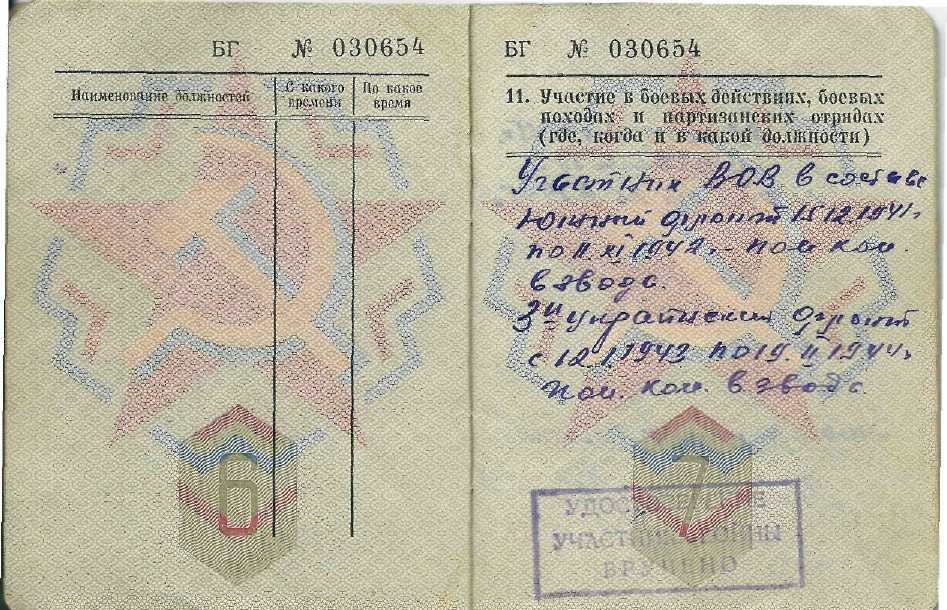 БГ № 030654
Наименование должностей
С какого времени
По какое время
6
БГ № 030654
11. Участие в боевых действиях, боевых
походах и партизанских отрядах
(где, когда и в какой должности)
Участник ВОВ в составе
Южный фронт 15.12.1941г.
по 11.XI 1942г. - пом ком.
взвода.
3й украинский фронт
с 12.1.1943 по 19.II 1944г.
пом. ком. взвода.
7
УДОСТОВЕРЕНИЕ
УЧАСТНИКА ВОЙНЫ
ВРУЧЕНО